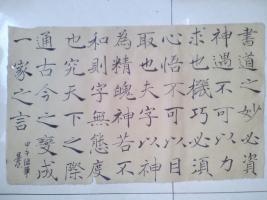 書道之妙必資
神遇不可以力
求也機巧必須
心悟不可以目
取也夫字以神
為精魄神若不
和則字無態度
也究天下之際
通古今之變成
一家之言
甲午